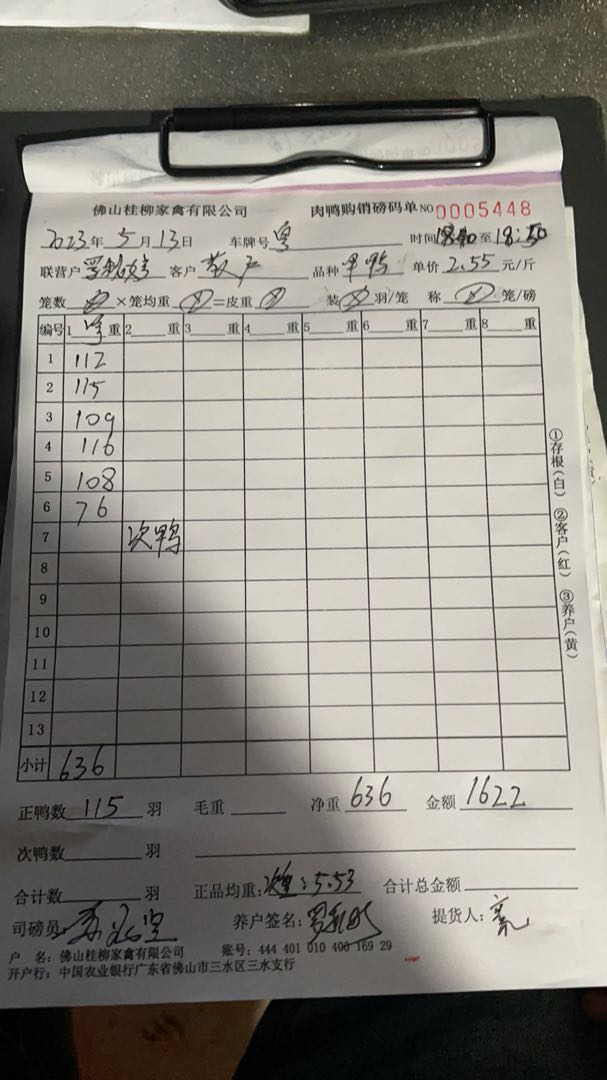 佛山桂柳家禽有限公司 肉鸭购销磅码单 NO 0005448
2023年 5月 13日 车牌号 粤 时间 至 18:50
联营户 客户 散户 品种 单价 2.55 元/斤
笼数 ×笼均重 =皮重 装 羽/笼 称 笼/磅
编号 1 净 重 2 重 3 重 4 重 5 重 6 重 7 重 8 重
1 112
2 115
3 109
4 116
5 108
6 76
7 次鸭
8
9
10
11
12
13
小计 636
①存根(白) ②客户(红) ③养户(黄)
正鸭数 115 羽 毛重 净重 636 金额 1622
次鸭数 羽
合计数 羽 正品均重: : 5.53 合计总金额
司磅员: 养户签名: 提货人:
户 名: 佛山桂柳家禽有限公司 账号: 444 401 010 400 169 29
开户行: 中国农业银行广东省佛山市三水区三水支行